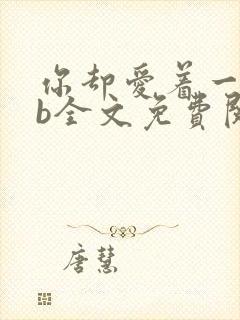 你却爱着一
b全文免费阅
唐慧